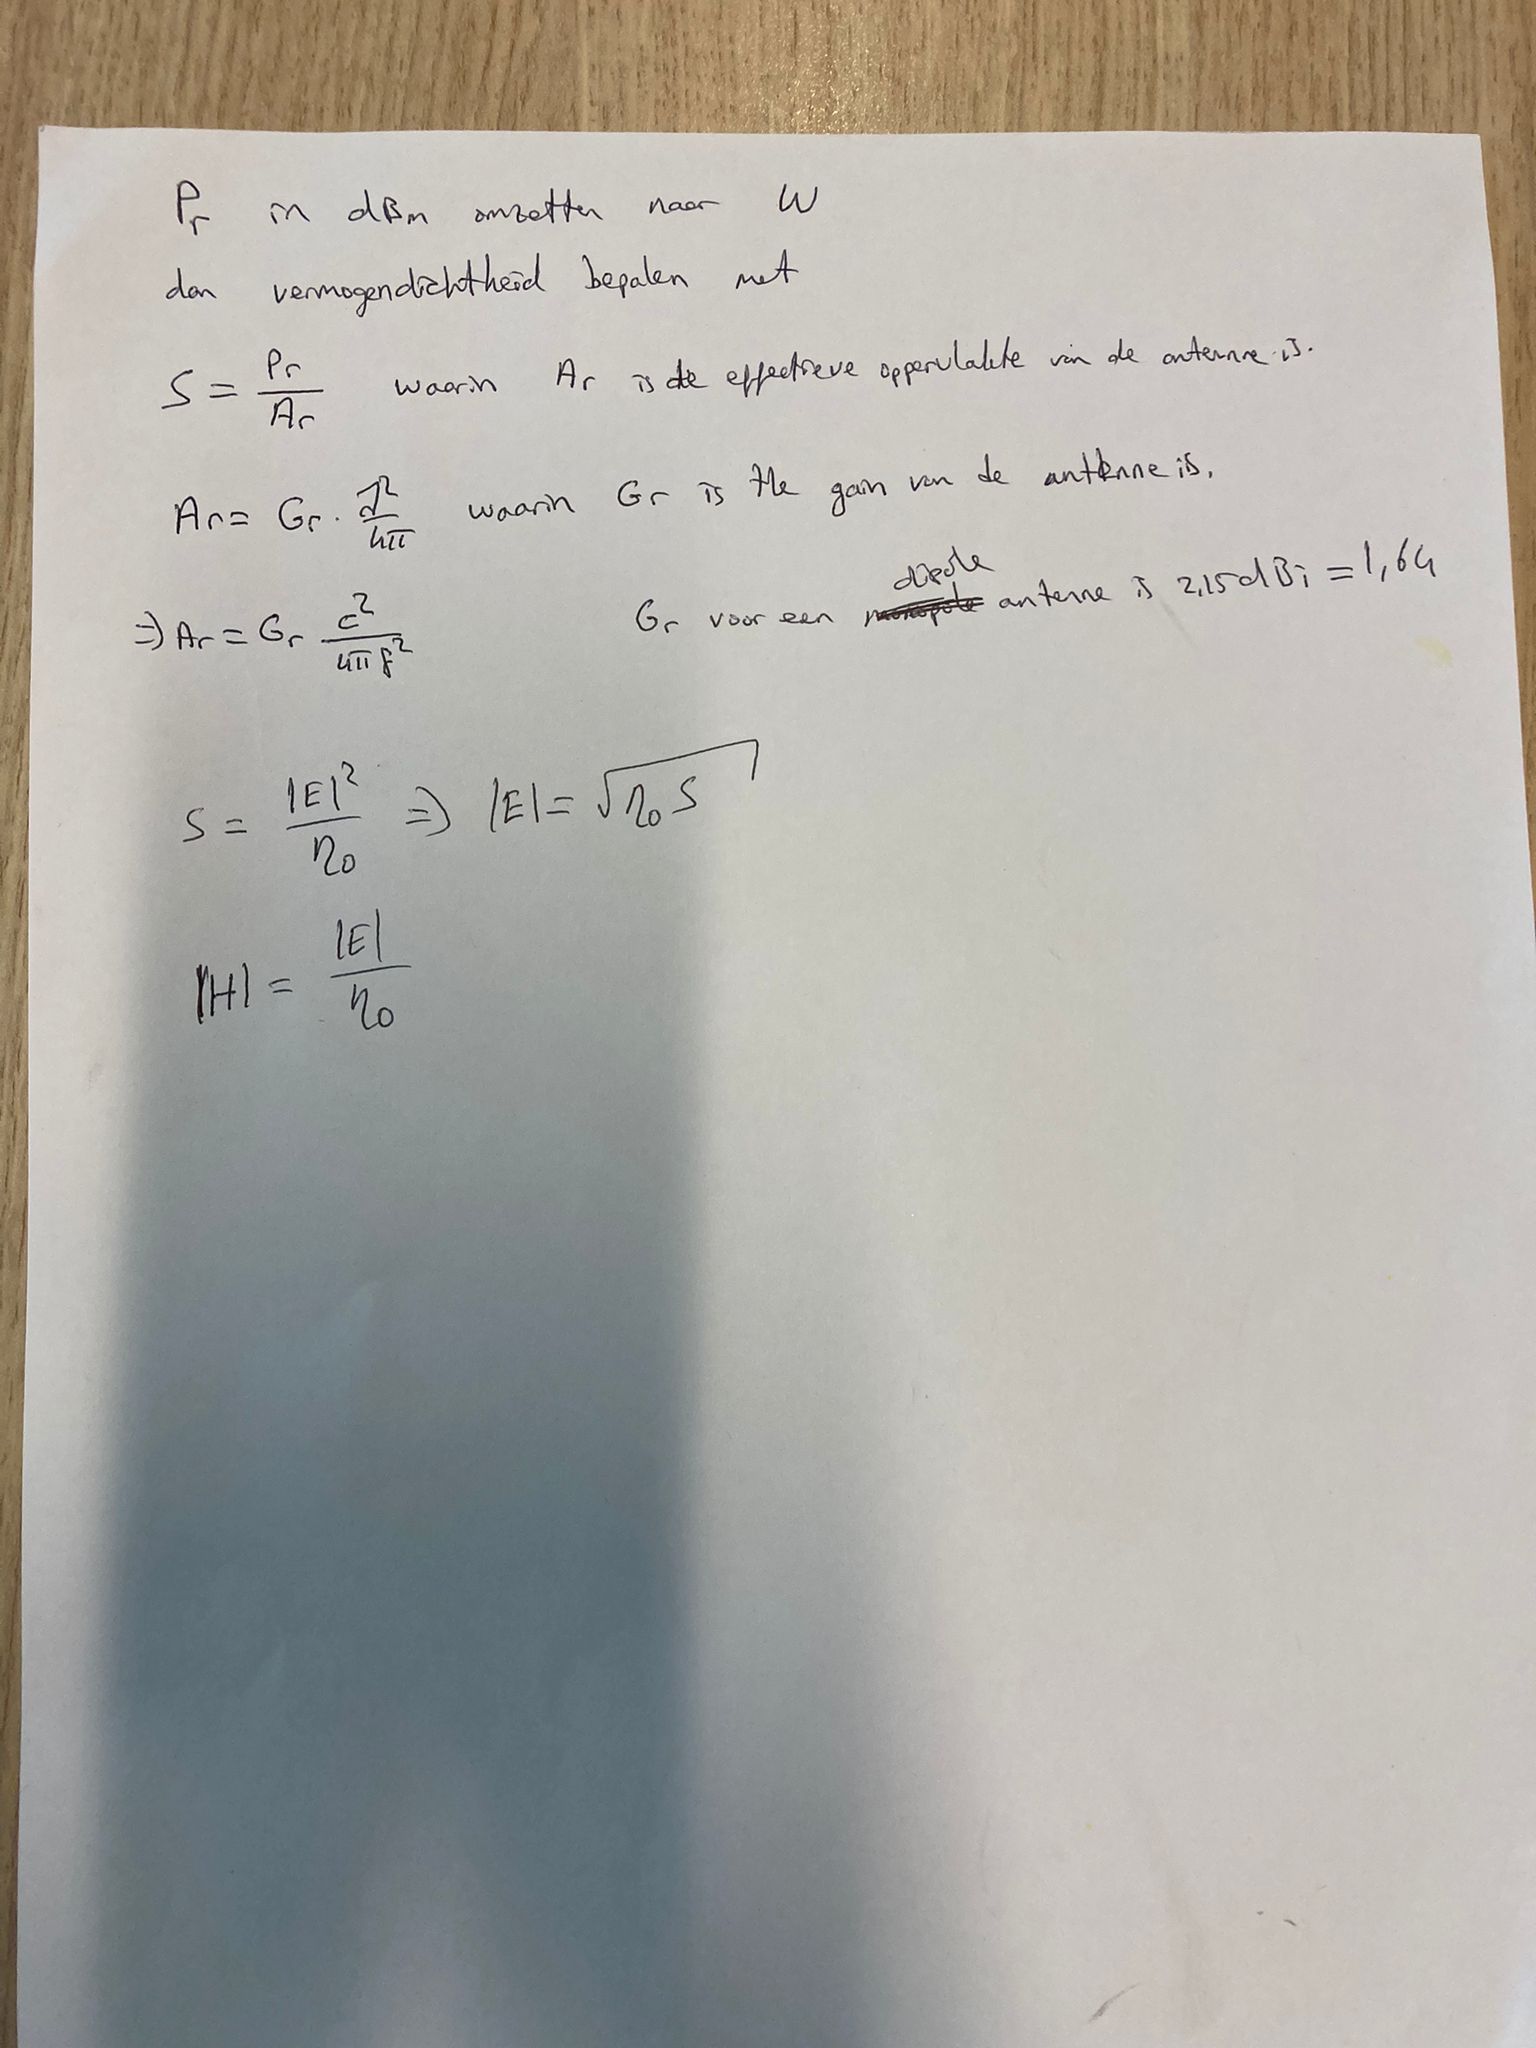 Pr in dBm omzetten naar W
dan vermogendichtheid bepalen met
S = Pr / Ar waarin Ar is de effectieve oppervlakte van de antenne is.
Ar = Gr · λ² / 4π waarin Gr is the gain van de antenne is.
dipole
⇒ Ar = Gr c² / 4πf² Gr voor een monopole antenne is 2,15 dBi = 1,64
S = |E|² / η0 ⇒ |E| = √η0 S
|H| = |E| / η0